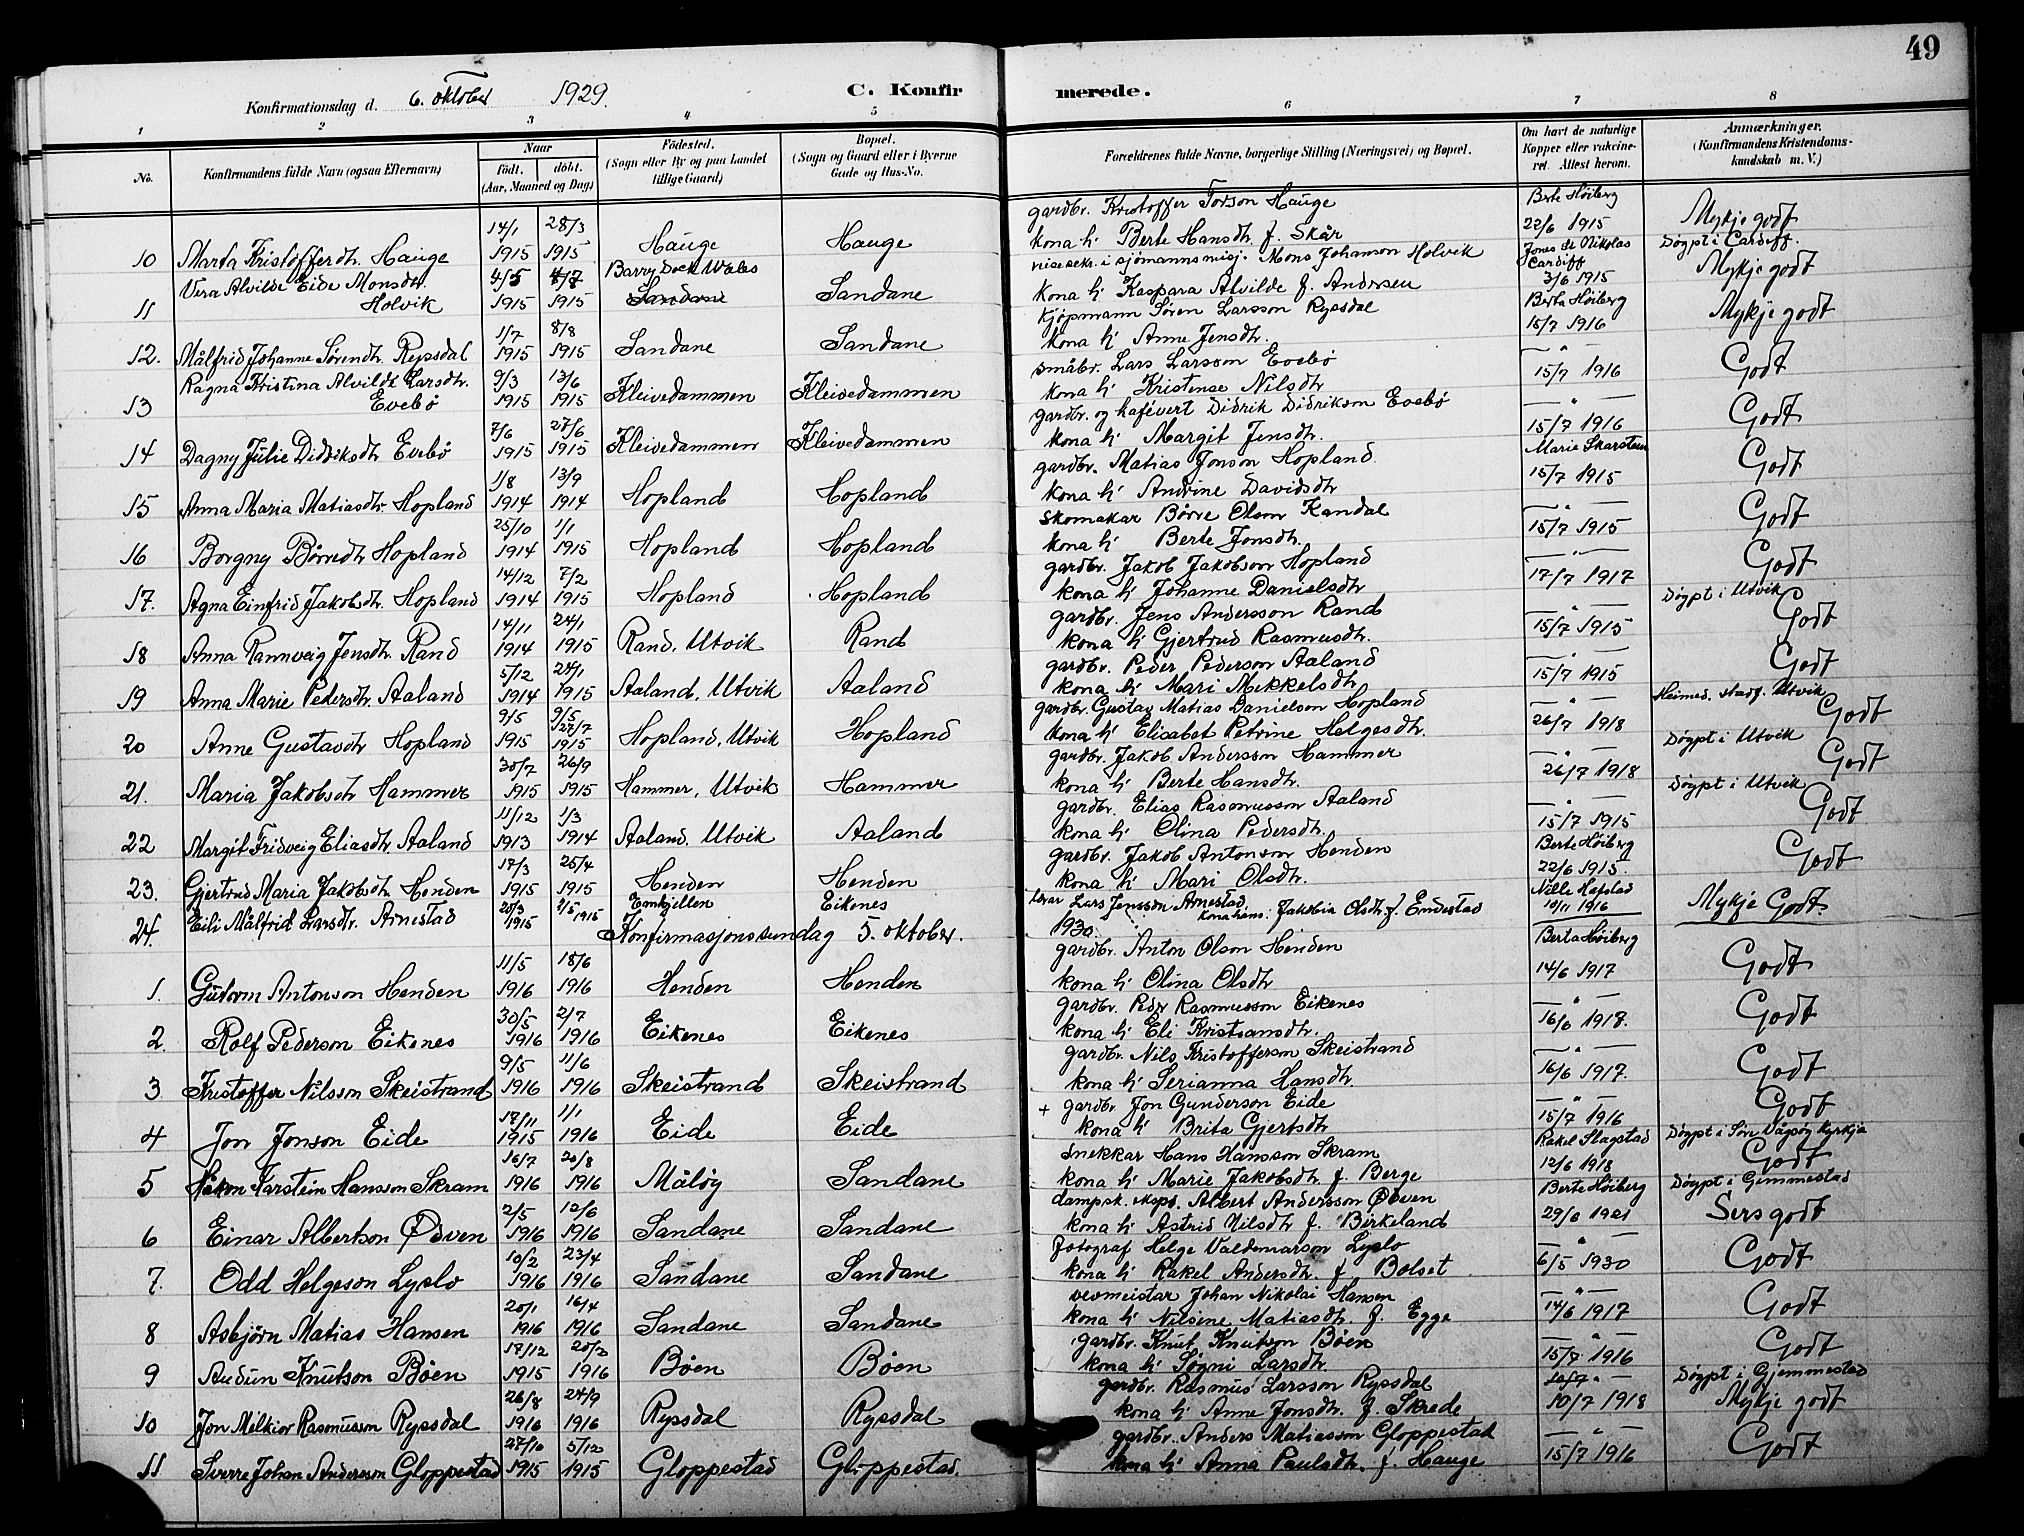 49
Konfirmationsdag d. 6. oktober 1929. C. Konfirmerede.
1 2 3 4 5 6 7 8
No. Konfirmandens fulde Navn (ogsaa Efternavn) Naar født. døbt. (Aar, Maaned og Dag) Fødested. (Sogn eller By og paa Landet tillige Gaard) Bopæl. (Sogn og Gaard eller i Byerne Gade og Hus-No. Forældrenes fulde Navne, borgerlige Stilling (Næringsvei) og Bopæl. Om havt de naturlige Kopper eller vakcineret. Attest herom. Anmærkninger. (Konfirmandens Kristendomskundskab m. V.)
10 Marta Kristofferdtr. Hauge 14/1 1915 28/3 1915 Hauge Hauge gardbr. Kristoffer Torson Hauge kona h' Berte Hansdtr. f. Skår Berte Høiberg 22/6 1915 Mykje godt
11 Vera Alvilde Eide Monsdtr. Holvik 4/5 1915 4/7 1915 Barry Dock Wales Sandane Sandane visesekr. i sjömannsmisj. Mons Johanson Holvik kona h' Kaspara Alvilde f. Andersen Jones St Nikolas Cardiff 3/6 1915 Døypt i Cardiff. Mykje godt
12. Målfrid Johanne Sørendtr. Rypsdal 1/7 1915 8/8 1915 Sandane Sandane Kjøpmann Søren Larsson Rypsdal kona h' Anne Jensdtr. Berta Høiberg 15/7 1916 Mykje godt
13 Ragna Kristina Alvilde Larsdtr. Evebø 9/3 1915 13/6 1915 Kleivedammen Kleivedammen småbr. Lars Larsson Evebø kona h' Kristense Nilsdtr — " — 15/7 1916 Godt
14 Dagny Julie Didriksdtr Evebø 7/6 1915 27/6 1915 Kleivedammen Kleivedammen gardbr. og kafévert Didrik Didrikson Evebø kona h' Margit Jensdtr. — " — 15/7 1916 Godt
15 Anna Maria Matiasdtr. Hopland 1/8 1914 13/9 1914 Hopland Hopland gardbr. Matias Jonson Hopland kona h' Andrine Davidsdtr Marie Skarstein 15/7 1915 Godt
16 Borgny Børredtr Hopland 25/10 1914 1/1 1915 Hopland Hopland skomakar Børre Olson Kandal kona h' Berte Jonsdtr. — " — 15/7 1915 Godt
17. Agna Einfrid Jakobsdtr. Hopland 14/12 1914 7/2 1915 Hopland Hopland gardbr. Jakob Jakobson Hopland kona h' Johanne Danielsdtr — " — 17/7 1917 Godt
18 Anna Rannveig Jensdtr. Rand 14/11 1914 24/1 1915 Rand, Utvik Rand gardbr. Jens Andersson Rand kona h' Gjertrud Rasmusdtr. — " — 15/7 1915 Døypt i Utvik Godt
19 Anna Marie Pedersdtr. Aaland 5/12 1914 24/1 1915 Aaland, Utvik Aaland gardbr. Peder Pederson Aaland kona h' Mari Mikkelsdtr — " — 15/7 1915 Godt
20 Anne Gustavdtr Hopland 9/5 1915 9/5 27/7 1915 Hopland, Utvik Hopland gardbr. Gustav Matias Danielson Hopland kona h' Elisabet Petrine Helgesdtr. — " — 26/7 1918 Heimed. stadf. Utvik Godt
21. Maria Jakobsdtr Hammer 30/7 1915 26/9 1915 Hammer, Utvik Hammer gardbr. Jakob Andersson Hammer kona h' Berte Hansdtr. — " — 26/7 1918 Døypt i Utvik Godt
22 Margit Fridveig Eliasdtr. Aaland 11/12 1913 1/3 1914 Aaland, Utvik Aaland gardbr. Elias Rasmusson Aaland kona h' Olina Pedersdtr. — " — 15/7 1915 Døypt i Utvik Godt
23. Gjertrud Maria Jakobsdtr Henden 17/3 1915 25/4 1915 Henden Henden gardbr. Jakob Antonson Henden kona h' Mari Olsdtr. Berte Høiberg 22/6 1915. Godt
24. Eili Målfrid Larsdtr. Arnestad 28/3 1915 2/5 1915 Eikenes Lars Jensson Arnestad kona hans: Jakobia Olsdtr f. Endestad Nille Hafstad 10/11 1916 Mykje Godt.
Konfirmasjonssundag 5. oktober. 1930.
1. Guttorm Antonson Henden 11/5 1916 18/6 1916 Henden Henden gardbr. Anton Olson Henden kona h' Olina Olsdtr Berta Høiberg 14/6 1917 Godt
2. Rolf Pederson Eikenes 30/5 1916 2/7 1916 Eikenes Eikenes gardbr. Peder Rasmusson Eikenes kona h' Eli Kristiansdtr. — " — 16/6 1918. Godt
3 Kristoffer Nilsson Skeistrand 9/5 1916 11/6 1916 Skeistrand Skeistrand gardbr. Nils Kristofferson Skeistrand kona h' Serianna Hansdtr — " — 16/6 1917. Godt
4 Jon Jonson Eide 17/11 1915 1/1 1916 Eide Eide + gardbr Jon Gunderson Eide kona h' Brita Gjertsdtr — " — 15/7 1916 Godt
5 Håkon Karstein Hansson Skram 16/7 1916 20/8 1916 Måløy Sandane snekkar Hans Hansson Skram kona h' Marie Jakobsdtr. f. Berge Rakel Slagstad 12/6 1918 Døypt i Søre Vågsøy kyrkje Godt
6 Einar Albertson Ødven 2/5 1916 12/6 1916 Sandane Sandane dampsk. eksped. Albert Andersson Ødven kona h' Astrid Nilsdtr f. Birkeland Berte Høiberg 29/6 1921 Døypt i Gimmestad Sers godt
7. Odd Helgeson Lyslo 10/2 1916 23/4 1916 Sandane Sandane fotograf Helge Valdemarson Lyslo kona h' Rakel Andersdtr. f. Bolset — " — 6/5 1930 Godt
8 Asbjørn Matias Hansen 20/1 1916 16/4 1916 Sandane Sandane vevmeistar Johan Nikolai Hansen kona h' Nilsine Matiasdtr. f. Egge — " — 14/6 1917 Godt
9 Audun Knutson Bøen 19/12 1915 20/2 1916 Bøen Bøen gardbr. Knut Knutson Bøen kona h' Søgni Larsdtr — " — 15/7 1916 Godt
10 Jon Melkior Rasmusson Rypsdal 26/8 1916 24/9 1916 Rypsdal Rypsdal gardbr. Rasmus Larsson Rypsdal kona h' Anne Jonsdtr. f. Skrede — " — 10/7 1918 Døypt i Gjemmestad Mykje godt
11 Sverre Johan Andersson Gloppestad 27/10 1915 5/12 1915 Gloppestad Gloppestad. gardbr. Anders Matiasson Gloppestad kona h' Anna Paulsdtr. f. Hauge — " — 15/7 1916 Godt